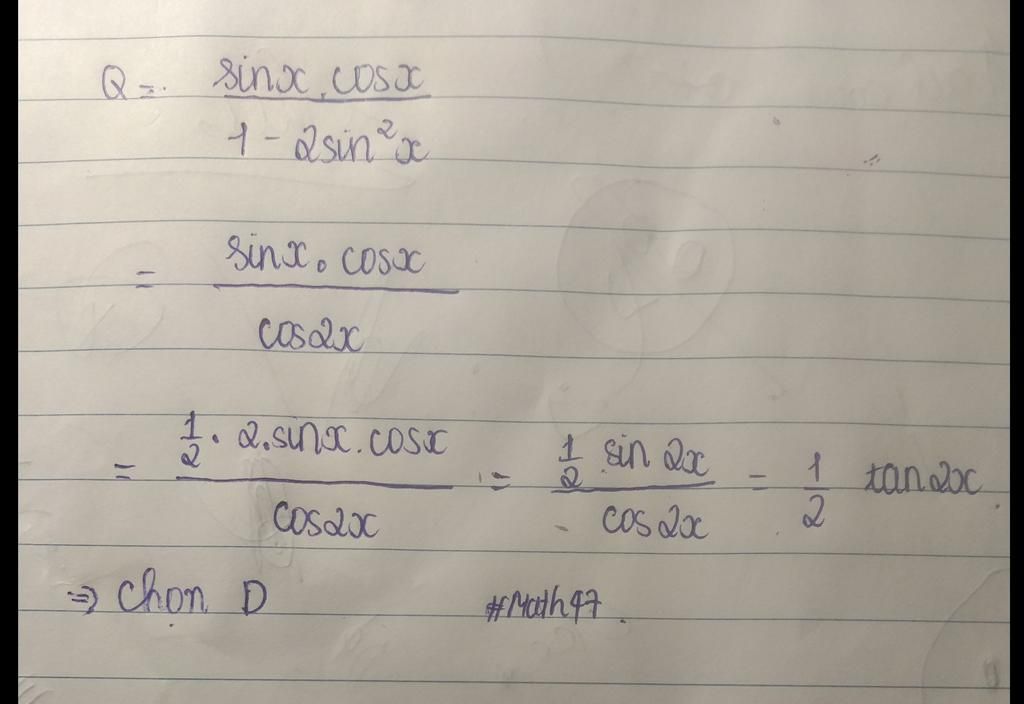 Q = sinx.cosx / 1 - 2sin²x
= sinx.cosx / cos2x
= 1/2 . 2.sinx.cosx / cos2x = 1/2 sin 2x / cos 2x = 1/2 tan2x
⇒ Chọn D #Math97.